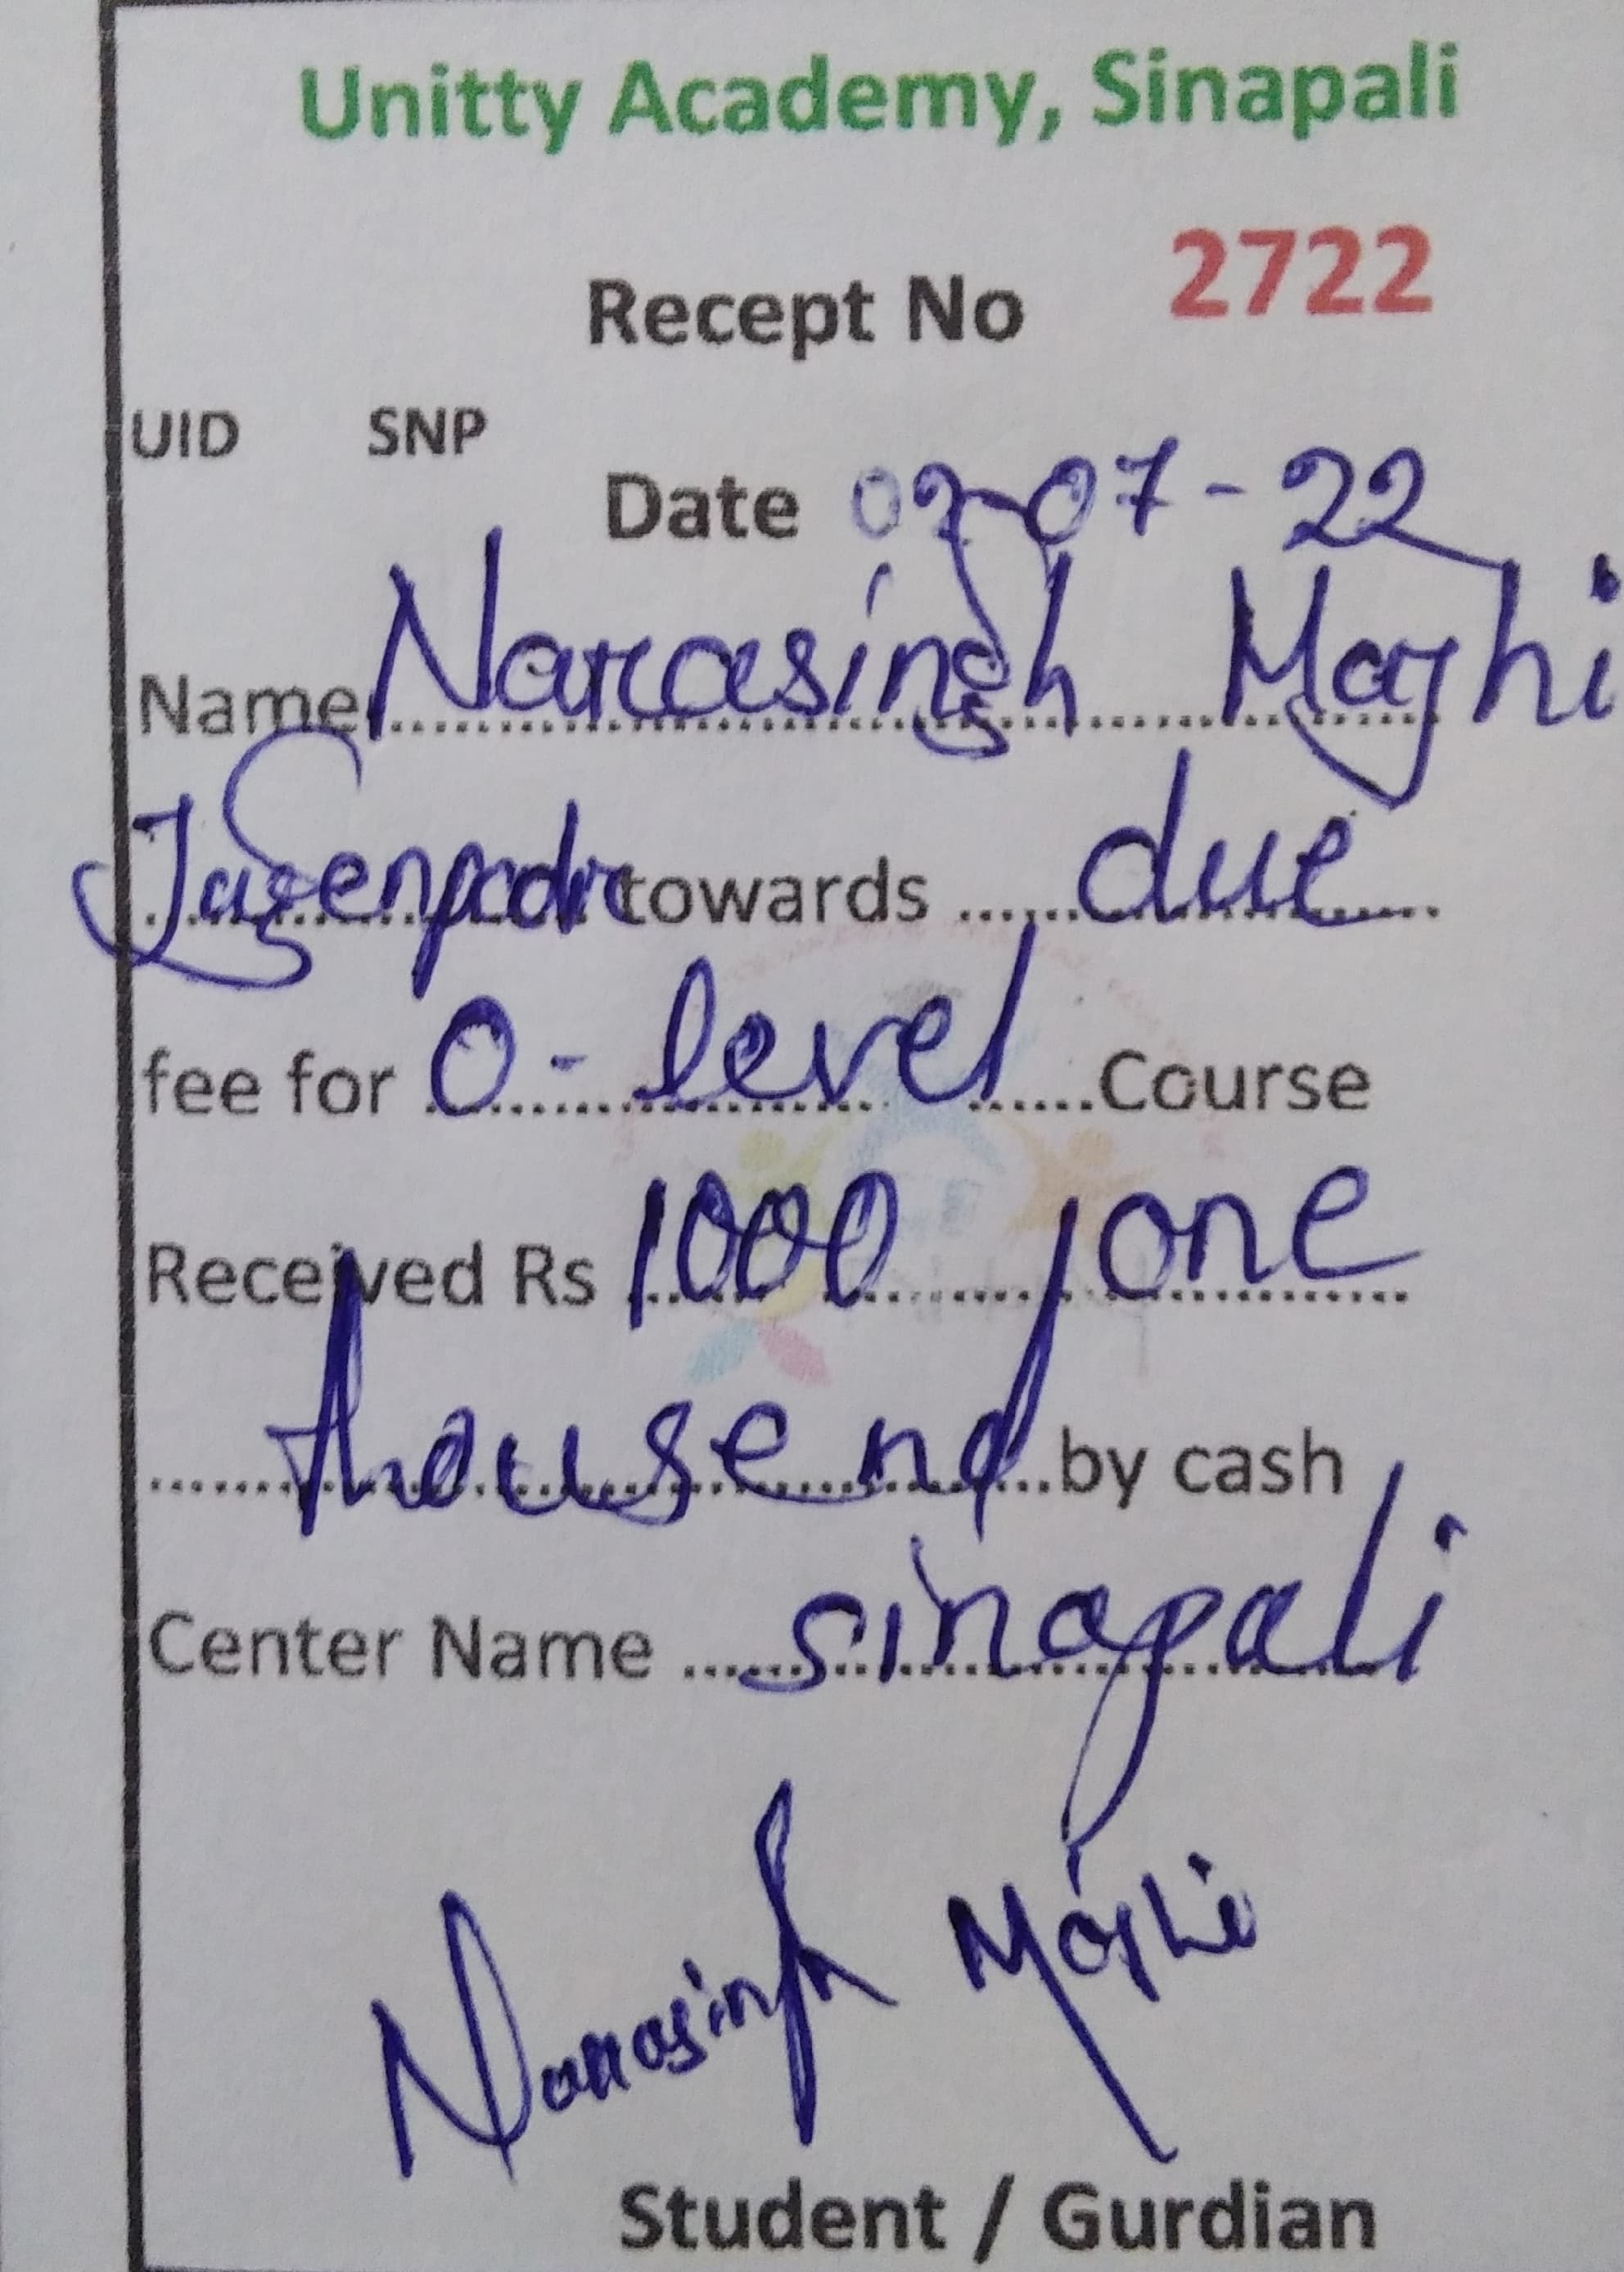 Unitty Academy, Sinapali
Recept No 2722
UID SNP
Date 02-07-22
Name Narasingh Majhi
towards due
fee for O-level Course
Received Rs 1000 / one
thousend by cash
Center Name sinapali
Narasingh Majhi
Student / Gurdian